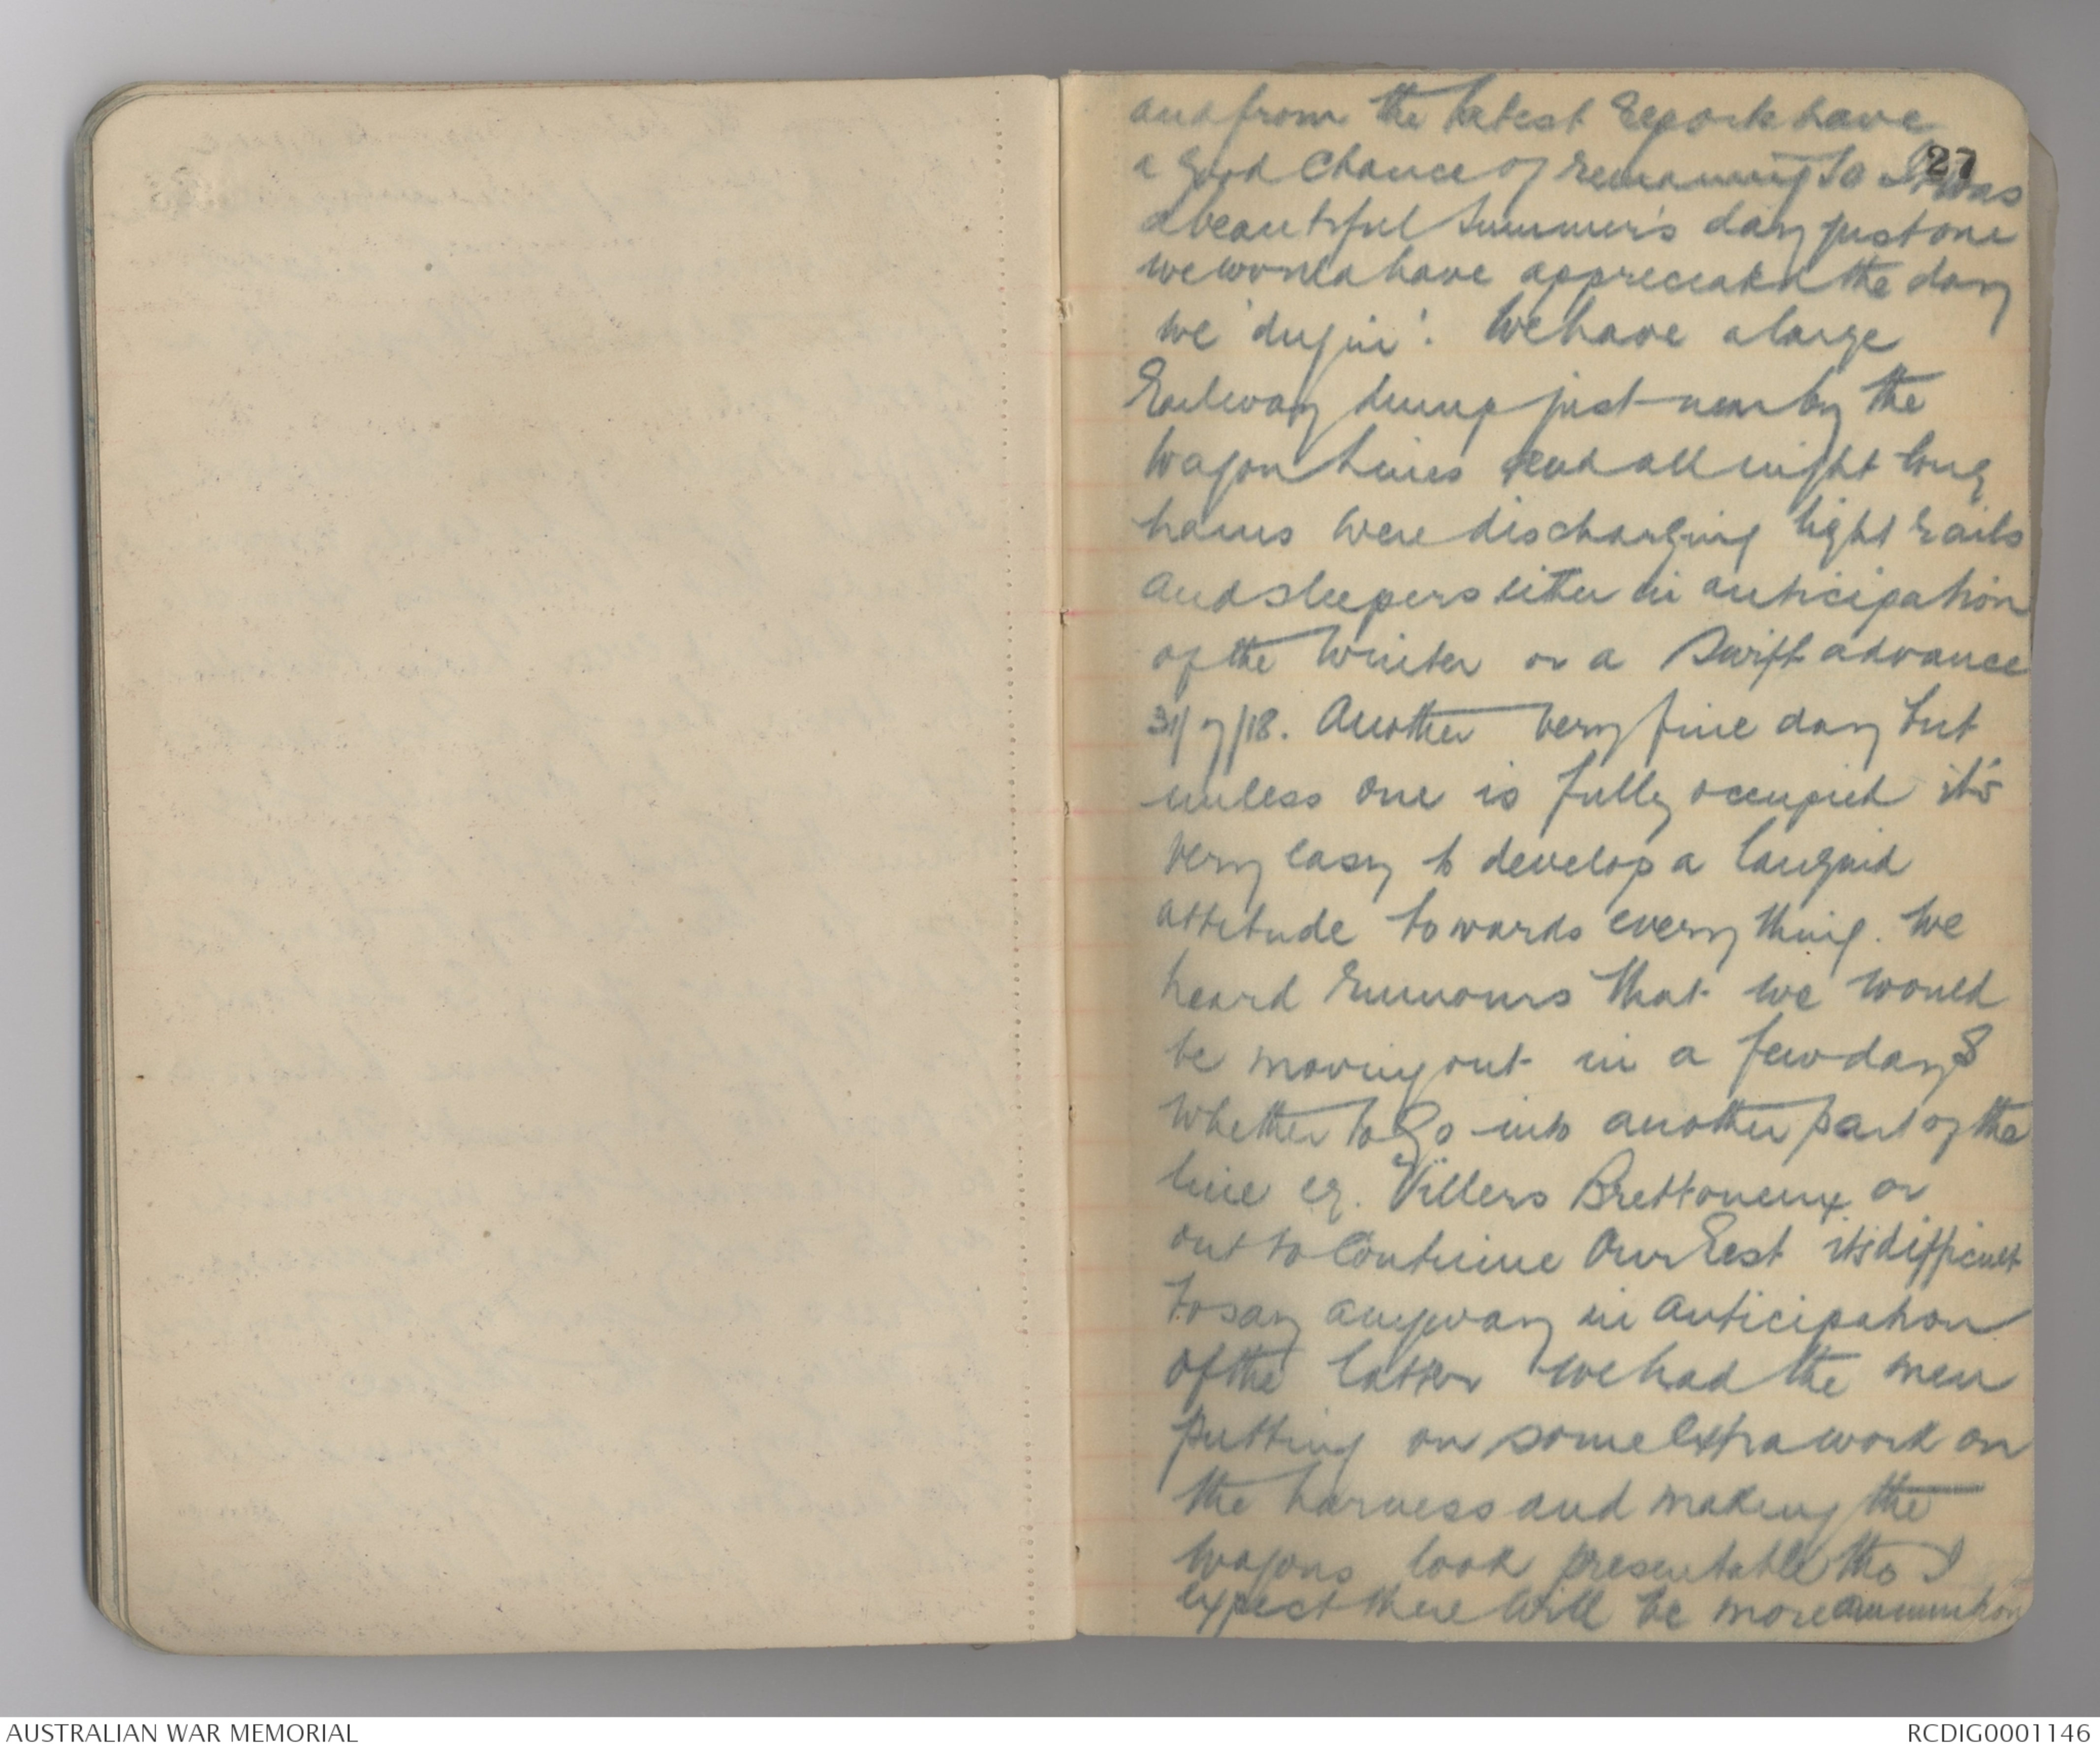 and from the latest reports have
27
a good chance of remaining so It was
a beautiful summer's day just one
we would have appreciated the day
we 'dug in'. We have a large
Railway dump just near by the
wagon lines and all night long
trains were discharging light rails
and sleepers either in anticipation
of the Winter or a swift advance
31/7/18. Another very fine day but
unless one is fully occupied it's
very easy to develop a languid
attitude towards everything. We
heard rumours that we would
be moving out in a few days
whether to go into another part of the
line eg. Villers Brettoneux or
out to continue our rest its difficult
to say anyway in anticipation
of the latter we had the men
putting on some extra work on
the harness and making the
wagons look presentable tho I
expect there will be more ammunition
AUSTRALIAN WAR MEMORIAL
RCDIG0001146